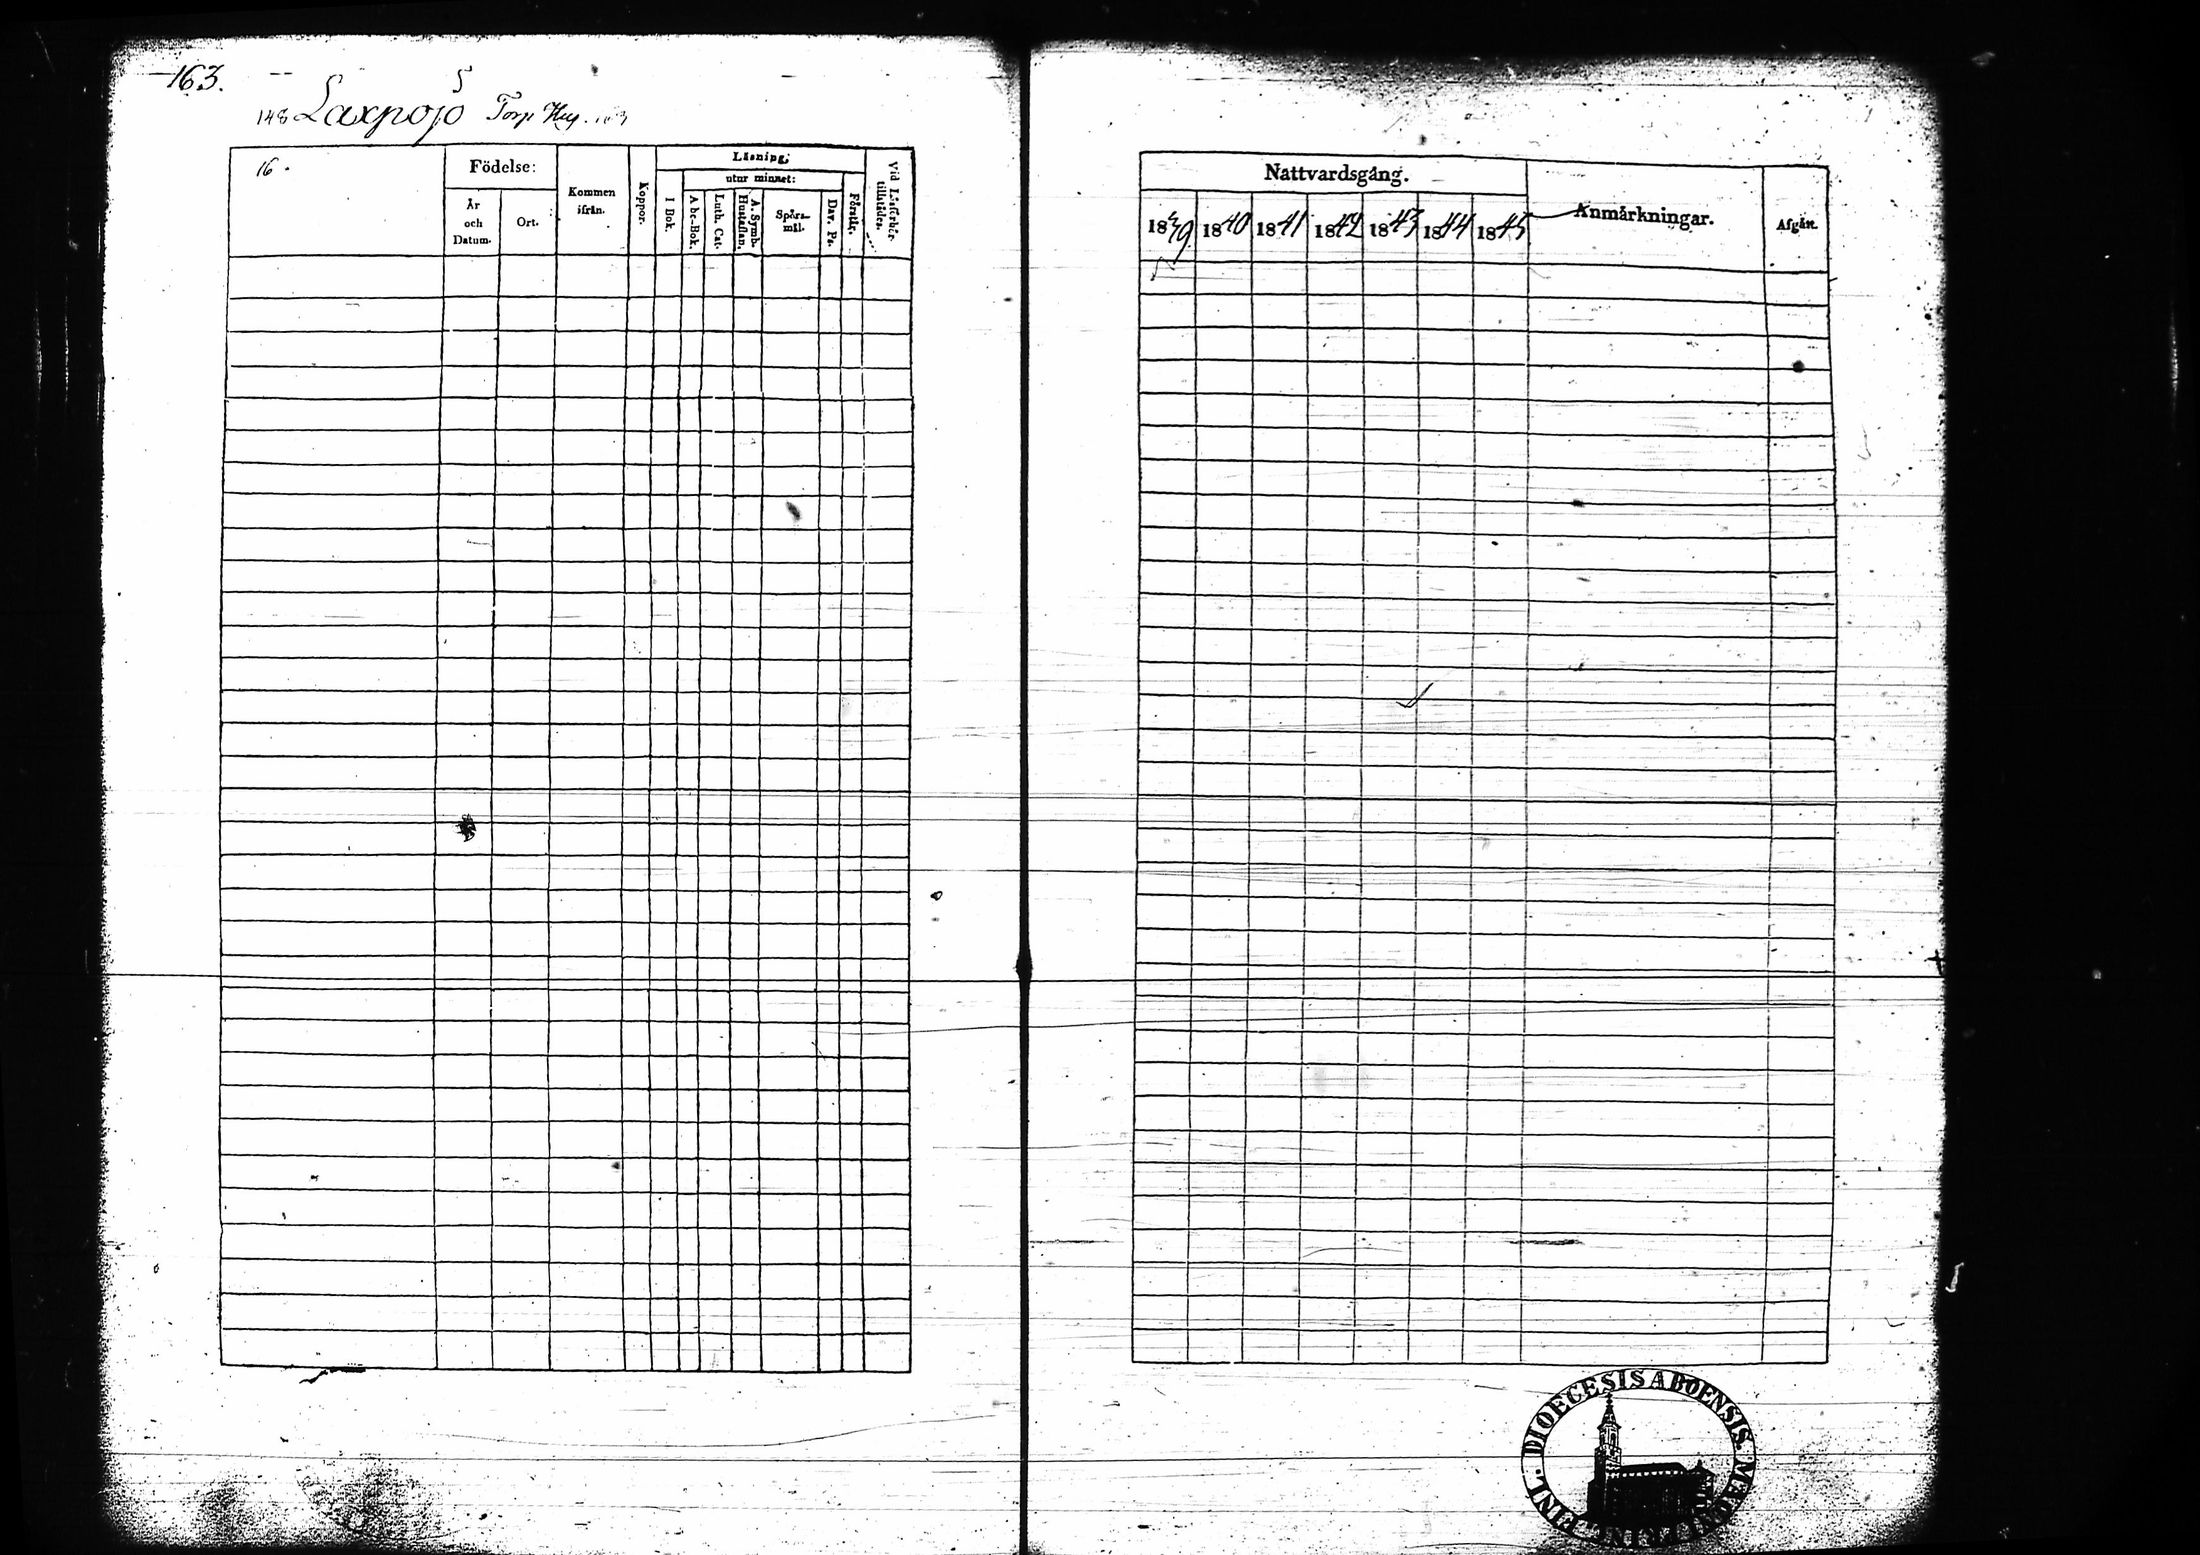 163.
5
148 Laxpojo Torp
16.
Födelse:
År
och
Datum.
Ort.
Kommen
ifrån.
Koppor.
Läsning;
utur minnet:
I Bok.
Abc-Bok.
Luth. Cat.
A. Symb.
Hustaflan.
Spörs-
mål.
Dav. Ps.
Förstår.
Vid Läsförhör
tillstädes.
Nattvardsgång.
1839 1840 1841 1842 1843 1844 1845
Anmärkningar.
Afgått.
FINL. DIOECESIS ABOENSIS.